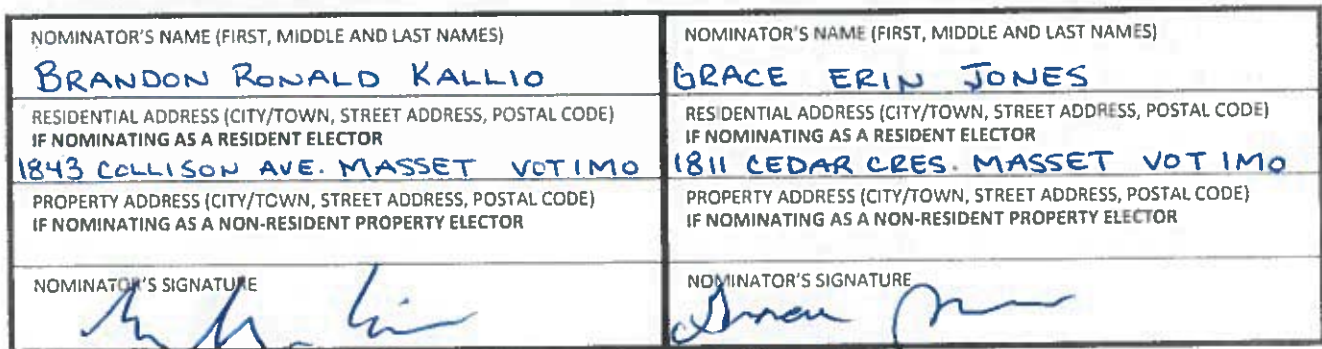 NOMINATOR'S NAME (FIRST, MIDDLE AND LAST NAMES)
BRANDON RONALD KALLIO
RESIDENTIAL ADDRESS (CITY/TOWN, STREET ADDRESS, POSTAL CODE)
IF NOMINATING AS A RESIDENT ELECTOR
1843 COLLISON AVE. MASSET V0T 1M0
PROPERTY ADDRESS (CITY/TOWN, STREET ADDRESS, POSTAL CODE)
IF NOMINATING AS A NON-RESIDENT PROPERTY ELECTOR
NOMINATOR'S SIGNATURE
NOMINATOR'S NAME (FIRST, MIDDLE AND LAST NAMES)
GRACE ERIN JONES
RESIDENTIAL ADDRESS (CITY/TOWN, STREET ADDRESS, POSTAL CODE)
IF NOMINATING AS A RESIDENT ELECTOR
1811 CEDAR CRES. MASSET V0T 1M0
PROPERTY ADDRESS (CITY/TOWN, STREET ADDRESS, POSTAL CODE)
IF NOMINATING AS A NON-RESIDENT PROPERTY ELECTOR
NOMINATOR'S SIGNATURE